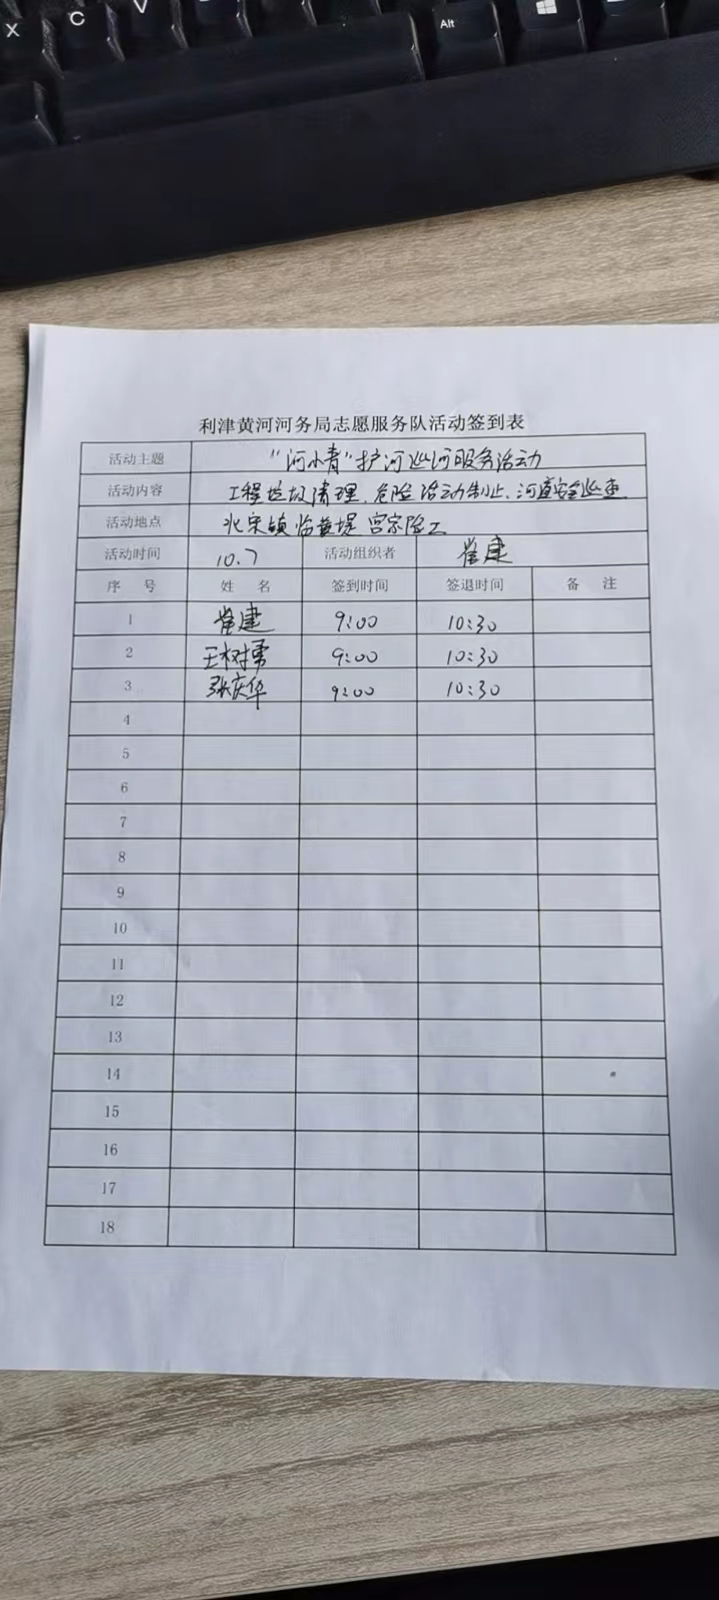 X C V Alt
利津黄河河务局志愿服务队活动签到表
活动主题 “河小青”护河巡河服务活动
活动内容 工程垃圾清理、危险活动制止、河道安全巡查
活动地点 北宋镇临黄堤 宫家险工
活动时间 10.7 活动组织者 崔建
序 号 姓 名 签到时间 签退时间 备 注
1 崔建 9:00 10:30
2 王树勇 9:00 10:30
3 张庆华 9:00 10:30
4
5
6
7
8
9
10
11
12
13
14
15
16
17
18